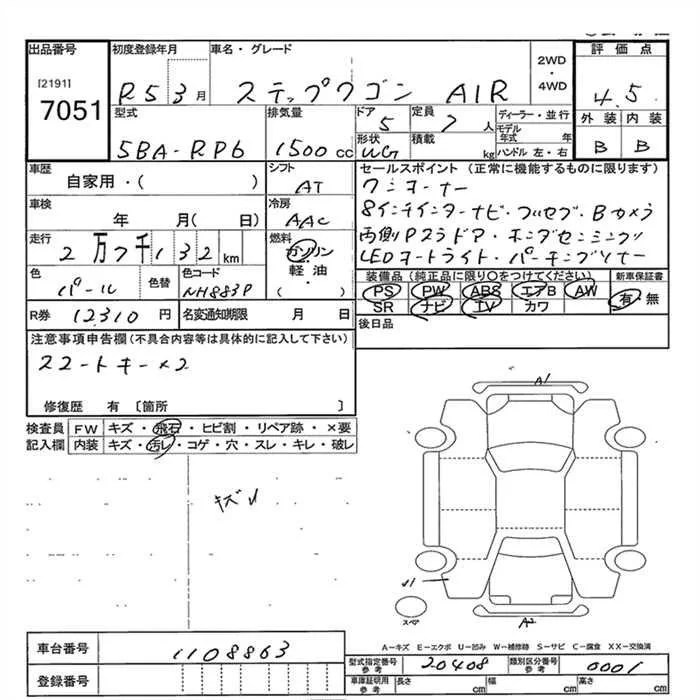 出品番号
[2191]
7051
初度登録年月
R5 3月
車名・グレード
ステップワゴン AIR
2WD
・
4WD
評価点
4.5
外装 内装
B B
型式
5BA-RP6
排気量
1500 CC
ドア
5
形状
WG
定員
7 人
積載
kg
ディーラー・並行
モデル年式 年
ハンドル 左・右
車歴
自家用・( )
シフト
AT
車検
年 月( 日)
冷房
AAC
走行
2万7千132 km
燃料
ガソリン
軽油・
( )
色
パール
色替
色コード
NH883P
R券 12310 円
名変通知期限 月 日
セールスポイント (正常に機能するものに限ります)
ワンオーナー
8インチインターナビ・フルセグ・Bカメラ
両側Pスラドア・ホンダセンシング
LEDオートライト・パーキングソナー
装備品(純正品に限り○をつけてください)
新車保証書
PS PW ABS エアB AW
SR ナビ TV カワ
有・無
後日品
注意事項申告欄(不具合内容等は具体的に記入して下さい)
スマートキー×2
修復歴 有 〔箇所 〕
検査員記入欄
FW キズ・飛石・ヒビ割・リペア跡・×要
内装 キズ・汚レ・コゲ・穴・スレ・キレ・破レ
キズ
A1
A2
スペア
A-キズ E-エクボ U-凹み W-補修跡 S-サビ C-腐食 XX-交換済
車台番号 1108863
登録番号
型式指定番号 参考 20408
類別区分番号 参考 0001
車庫証明用 参考 長さ cm 幅 cm 高さ cm